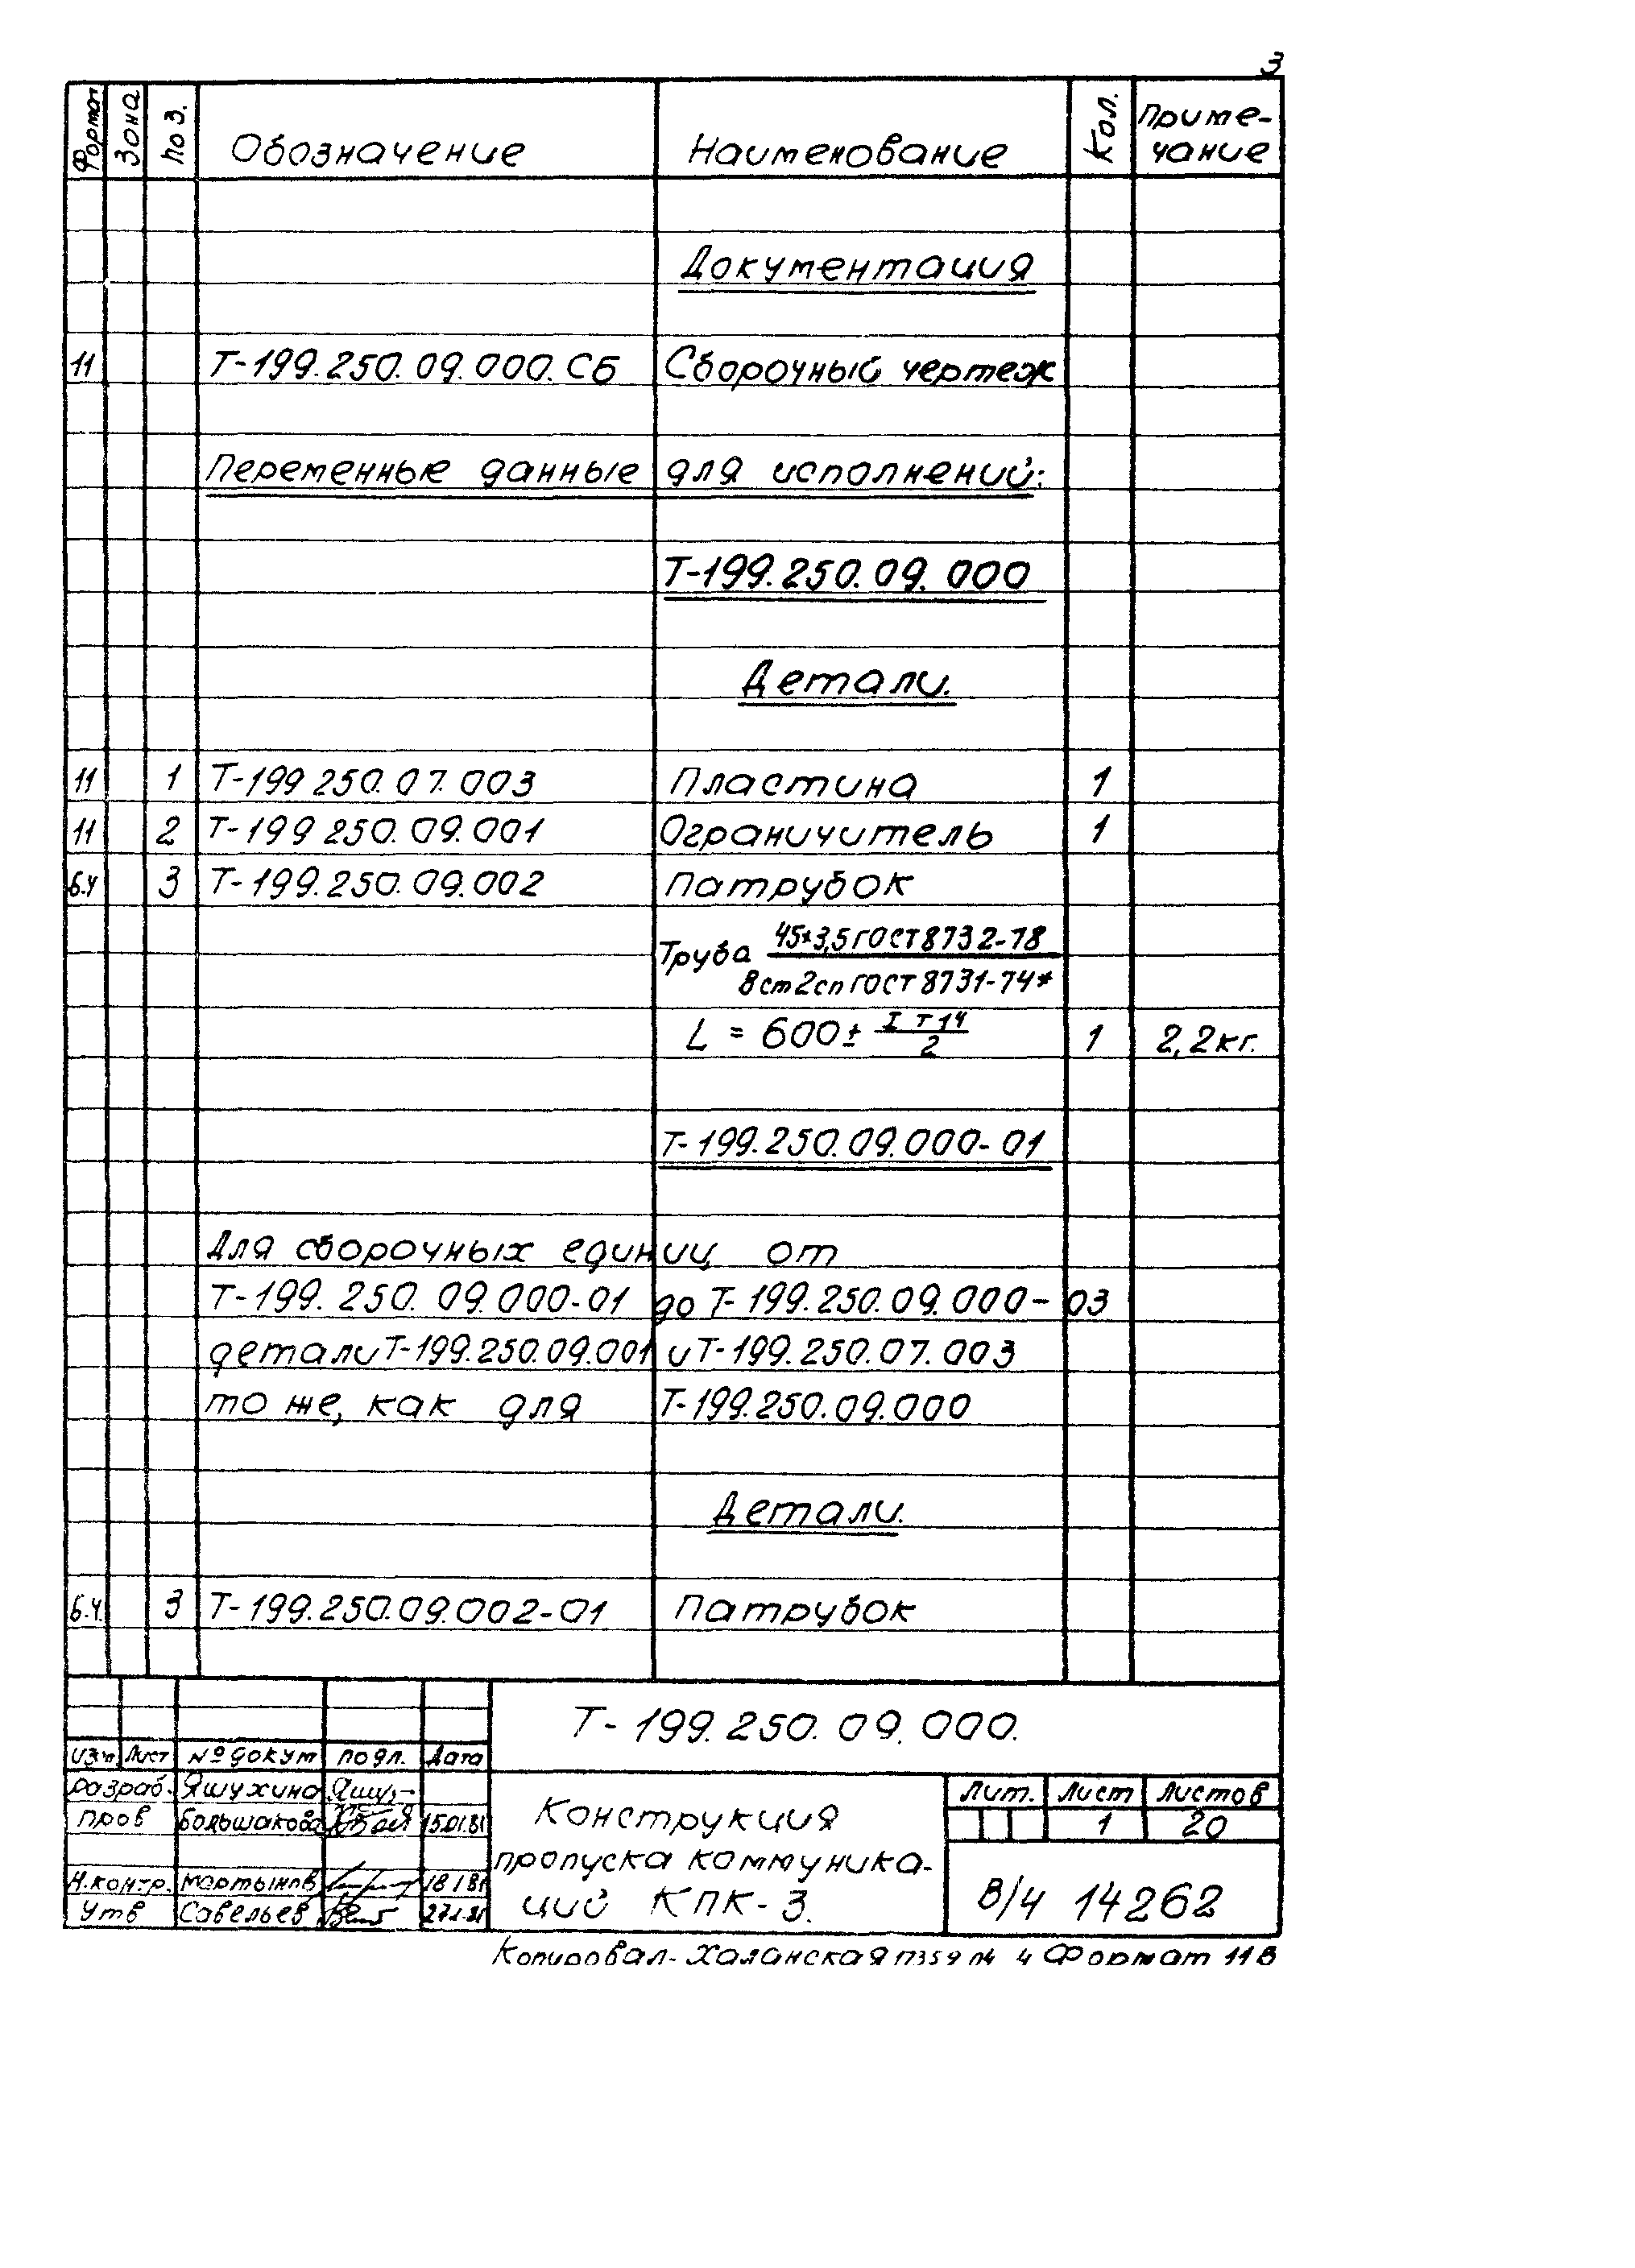 3
Формат Зона Поз. Обозначение Наименование Кол. Приме-
чание
Документация
11 Т-199.250.09.000.СБ Сборочный чертеж
Переменные данные для исполнений:
Т-199.250.09.000
Детали.
11 1 Т-199 250.07.003 Пластина 1
11 2 Т-199 250.09.001 Ограничитель 1
б.ч 3 Т-199.250.09.002 Патрубок
Труба 45×3,5 ГОСТ 8732-78
В ст2сп ГОСТ 8731-74*
L = 600 ± IТ14/2 1 2,2кг.
Т-199.250.09.000-01
Для сборочных единиц от
Т-199.250.09.000-01 до Т-199.250.09.000-03
детали Т-199.250.09.001 и Т-199.250.07.003
то же, как для Т-199.250.09.000
Детали.
б.ч. 3 Т-199.250.09.002-01 Патрубок
Т-199.250.09.000.
Изм. Лист № докум подл. Дата
разраб. Яшухина
пров Большакова 15.01.81
Н.контр. Мартынов 18 1 81
Утв Савельев 27.1.81
Конструкция
пропуска коммуника-
ций КПК-3.
Лит. Лист Листов
1 20
В/ч 14262
Копировал- Халанская Формат 11В